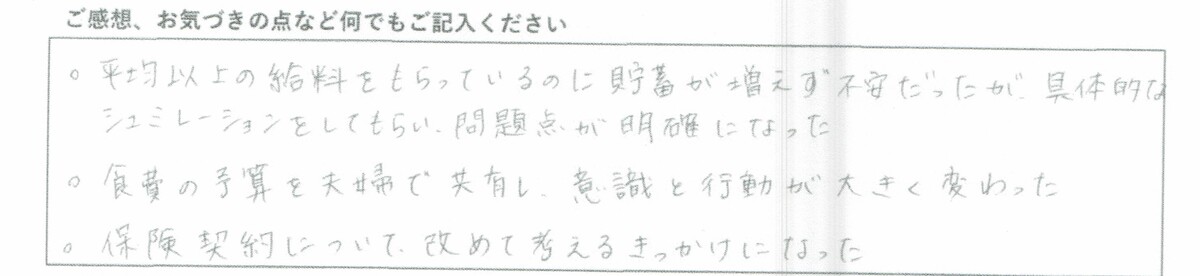 ご感想、お気づきの点など何でもご記入ください
○ 平均以上の給料をもらっているのに貯蓄が増えず不安だったが、具体的な
シュミレーションをしてもらい、問題点が明確になった
○ 食費の予算を夫婦で共有し、意識と行動が大きく変わった
○ 保険契約について、改めて考えるきっかけになった